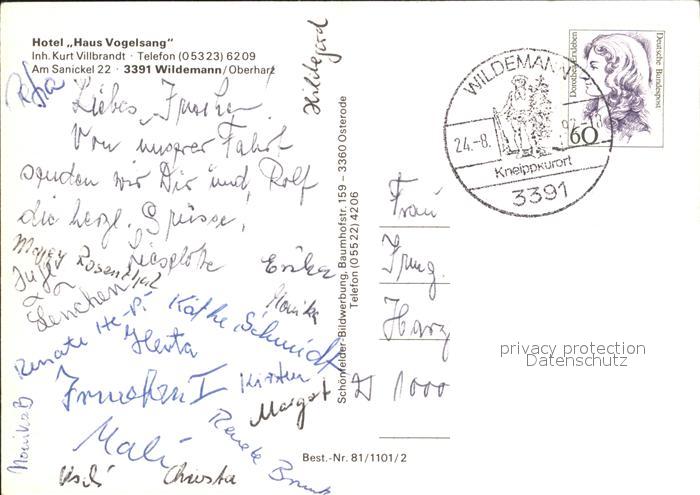 Hotel „Haus Vogelsang"
Inh. Kurt Villbrandt · Telefon (05323) 6209
Am Sanickel 22 · 3391 Wildemann/Oberharz
Hildegard
Liebes
Von unserer Fahrt
senden wir Dir und Rolf
die herzl. Grüsse,
Lieselotte
Rosenthal
Erika
Monika
Lenchen
Renate
Käthe Schmidt
Herta
Kirsten
Margot
Renate
Monika B
Mali
Uschi
Christa
Schönfelder-Bildwerbung, Baumhofstr. 159 – 3360 Osterode
Telefon (05522) 4206
Best.-Nr. 81/1101/2
WILDEMANN
24.-8.
Kneippkurort
3391
Dorothea Erxleben
Deutsche Bundespost
60
Frau
Irmg.
Harz
D 1000
privacy protection
Datenschutz